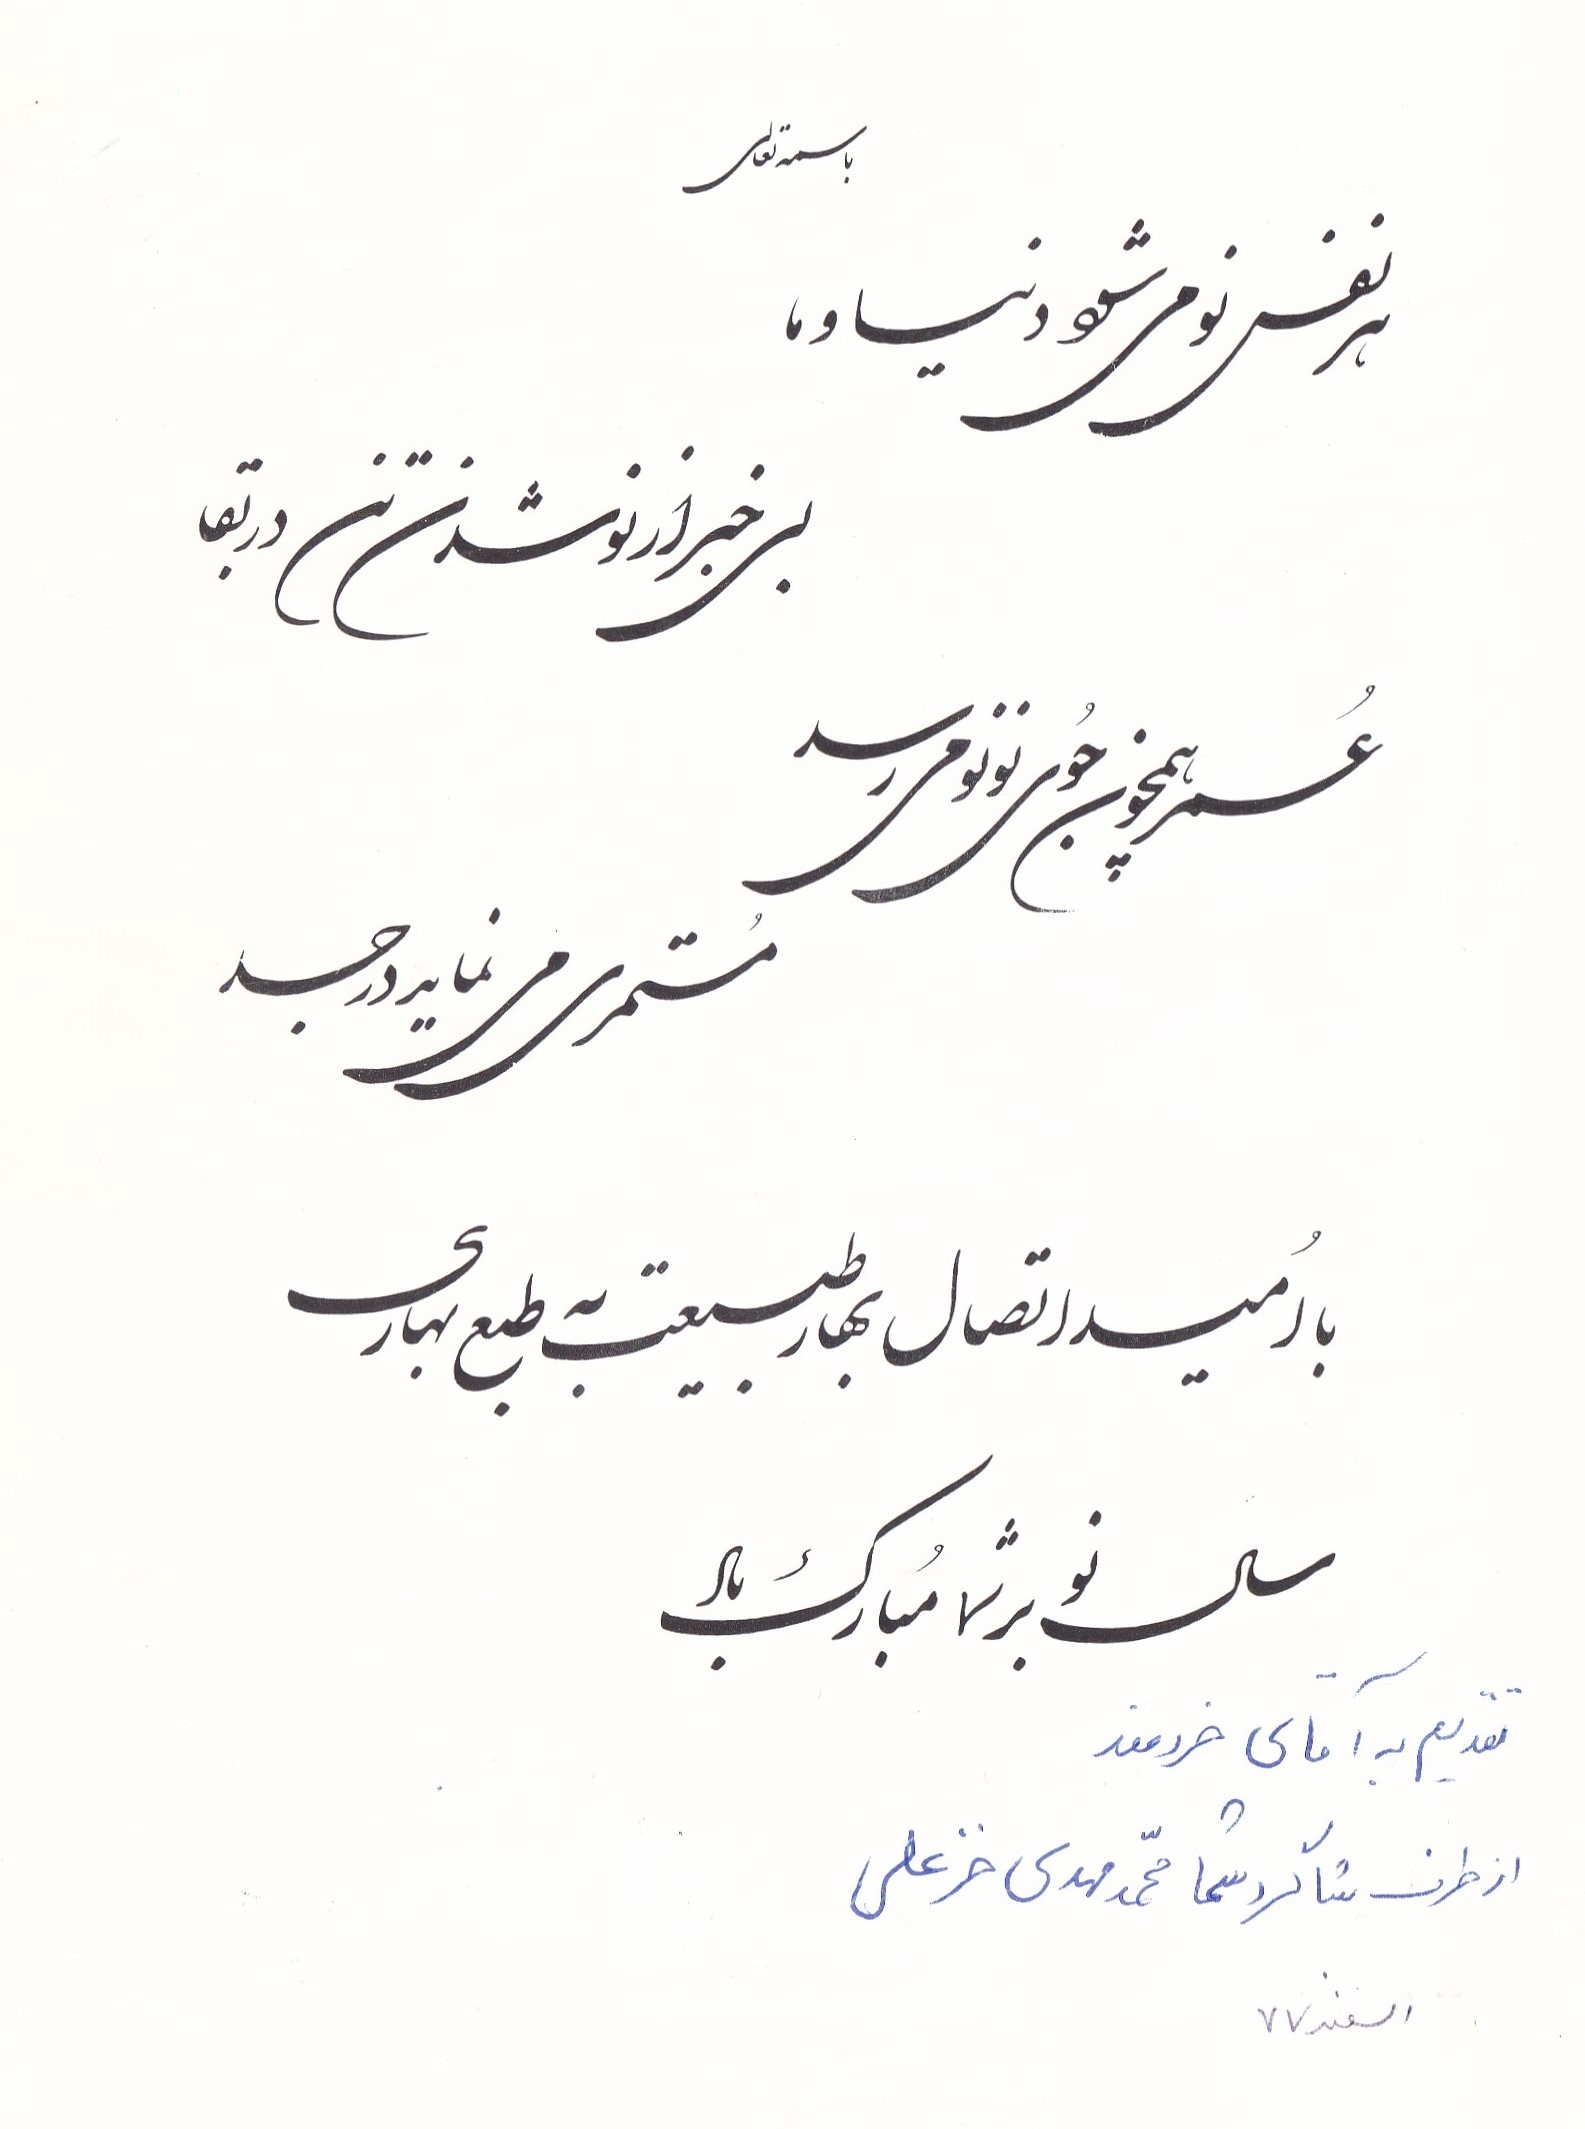 باسمه تعالی
هر نفس نو می‌شود دنیا و ما
بی‌خبر از نو شدن تن در بقا
عُمر همچون جُوی نو نو می‌رسد
مُستمری می‌نماید در جسد
با اُمید اتصال بهار طبیعت به طبع بهاری
سال نو بر شما مُبارک باد
تقدیم به آقای خردمند
از طرف شاگرد شما محمّد مهدی خزعلی
اسفند ۷۷